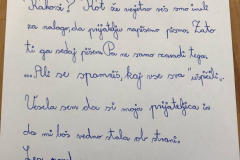 Kakosi? Kot že verjetno veš smo imeli
za nalogo, da prijatelju napišemo pismo. Zato
ti ga sedaj pišem. Pa ne samo zaradi tega.
...Ali se spomniš, kaj vse sva "ušpičili".
Vesela sem da si moja prijateljica in
da mi boš vedno stala ob strani.